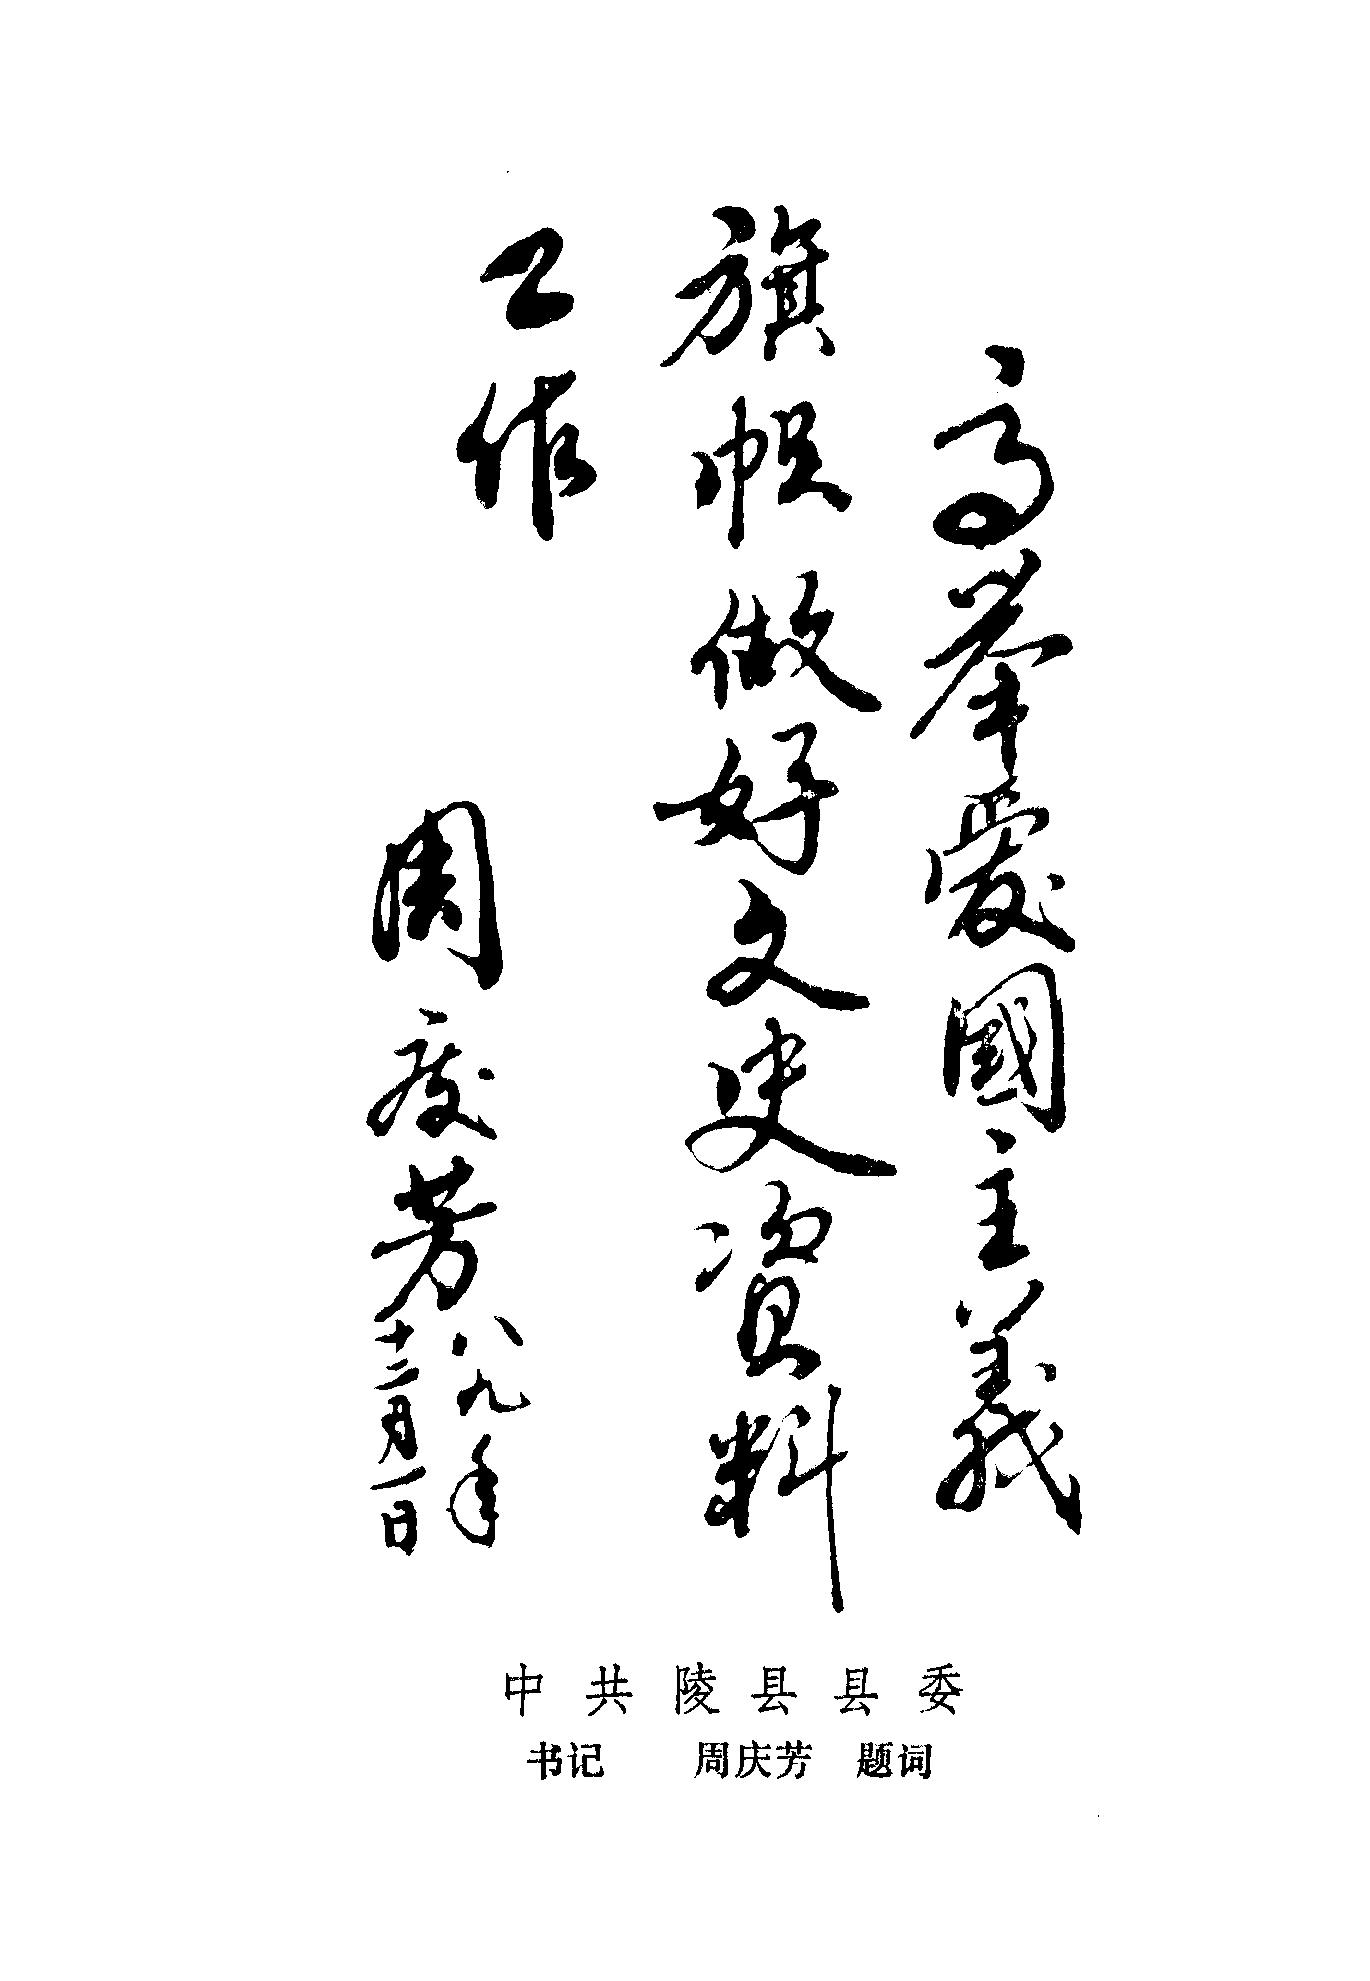 高举爱國主義
旗帜做好文史資料
工作
周庆芳
八九年
十二月一日
中共陵县县委
书记 周庆芳 题词